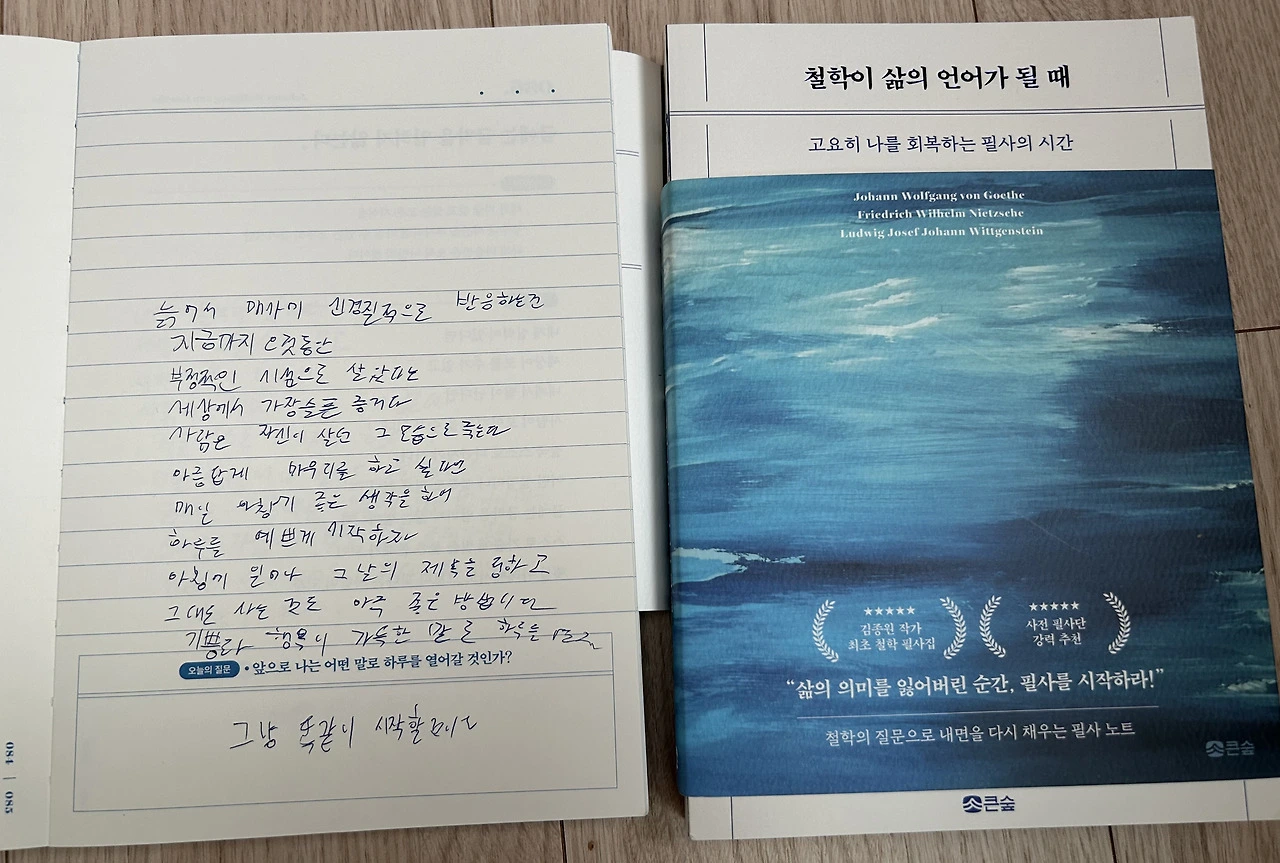 늙어서 매사에 신경질적으로 반응하는건
지금까지 오랫동안
부정적인 시선으로 살았다는
세상에서 가장슬픈 증거다
사람은 자신이 살던 그 모습으로 죽는다
아름답게 마무리를 하고 싶다면
매일 아침에 좋은 생각을 하며
하루를 예쁘게 시작하자
아침에 일어나 그날의 제목을 정하고
그대로 사는 것도 아주 좋은 방법이다
기쁨과 행복이 가득한 말로 하루를
오늘의 질문 • 앞으로 나는 어떤 말로 하루를 열어갈 것인가?
그냥 똑같이 시작할
084 | 085
철학이 삶의 언어가 될 때
고요히 나를 회복하는 필사의 시간
Johann Wolfgang von Goethe
Friedrich Wilhelm Nietzsche
Ludwig Josef Johann Wittgenstein
★★★★★
김종원 작가
최초 철학 필사집
★★★★★
사전 필사단
강력 추천
“삶의 의미를 잃어버린 순간, 필사를 시작하라!”
철학의 질문으로 내면을 다시 채우는 필사 노트
큰숲
큰숲